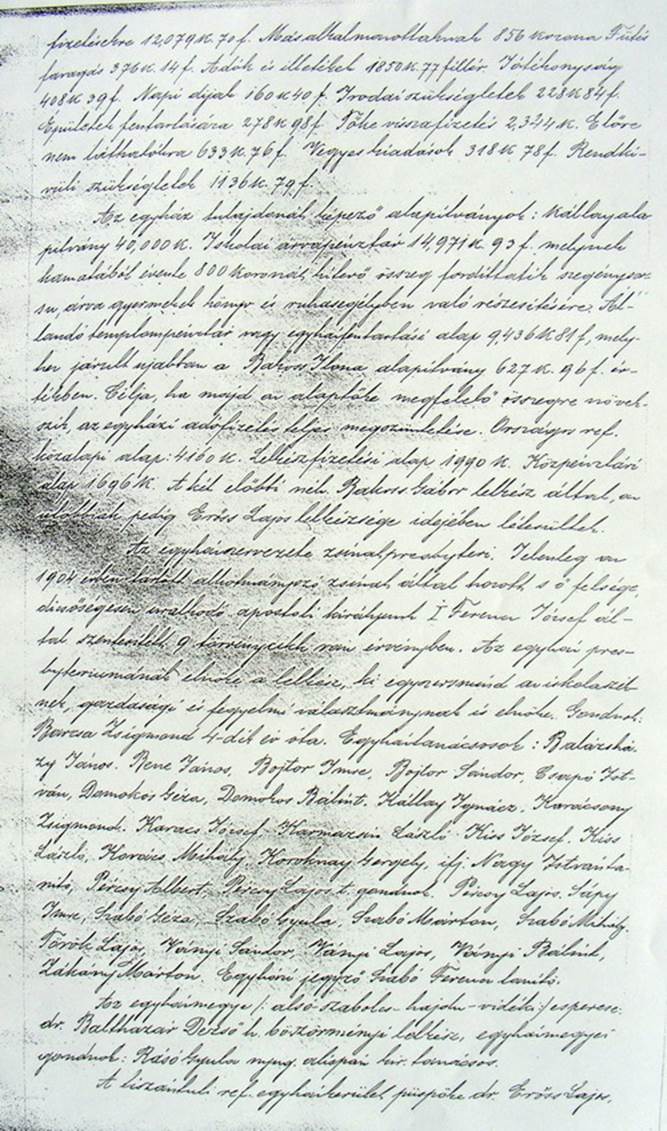 fizetésekre 12,079 K. 70 f. Más alkalmazottaknak 856 korona Fűtés
favágás 376 K. 14 f. Adók és illetékek 1850 K. 77 fillér. Jótékonyság
408 K 39 f. Napi díjak 160 K 40 f. Irodai szükségletek 228 K 84 f.
Épületek fentartására 278 K 98 f. Tőke visszafizetés 2,344 K. Előre
nem láthatókra 633 K. 76 f. Vegyes kiadások 318 K 78 f. Rendkí-
vüli szükségletek 1136 K. 79 f.
Az egyház tulajdonát képező alapítványok: Kállay ala
pítvány 40,000 K. Iskolai árvapénztár 14,971 K 93 f. melynek
kamatából évente 800 koronát kitevő összeg fordíttatik szegénysor-
su, árva gyermekek könyv és ruhasegélyben való részesítésére. Ál-
landó templompénztár vagy egyházfentartási alap 9,436 K 81 f, mely-
hez járult ujabban a Rakoss Ilona alapítvány 627 K. 96 f. ér-
tékben. Célja, ha majd az alaptőke megfelelő összegre növek-
szik, az egyházi adófizetés teljes megszüntetése. Országos ref.
közalapi alap: 4160 K. Lelkészfizetési alap 1990 K. Középiskolai
alap 1696 K. A két előbbi néh. Rakoss Gábor lelkész által, az
utóbbiak pedig Erőss Lajos lelkészsége idejében létesültek.
Az egyház szervezete zsinat-presbyteri. Jelenleg az
1904 évben tartott alkotmányozó zsinat által hozott s ő felsége,
dicsőségesen uralkodó apostoli királyunk I Ferenc József ál-
tal szentesített 9 törvénycikk van érvényben. Az egyház pres-
byteriumának elnöke a lelkész, ki egyszersmind az iskolaszék-
nek, gazdasági és fegyelmi választmánynak is elnöke. Gondnok:
Barcsa Zsigmond 4-dik év óta. Egyháztanácsosok: Balásházy
zy János. Bene János, Bojtor Imre, Bojtor Sándor, Csapó Ist-
ván, Domokos Géza, Domokos Bálint. Kállay Ignácz. Karácsony
Zsigmond. Karacs József. Karmazsin László. Kiss József. Kiss
László, Kovács Mihály, Koroknay Gergely, ifj. Nagy István ta-
nító, Péchy Albert, Péchy Lajos t. gondnok. Pércsy Lajos. Sápy
Imre, Szabó Géza, Szabó Gyula, Szabó Márton, Szabó Mihály.
Török Lajos, Ványi Sándor, Ványi Lajos, Ványi Bálint,
Zákány Márton. Egyházi jegyző Szabó Ferenc tanító.
Az egyházmegye /: alsó-szabolcs-hajdu-vidéki :/ esperese:
dr. Balthazár Dezső h. böszörményi lelkész, egyházmegyei
gondnok: Rásó Gyula nyug. alispán kir. tanácsos.
A tiszántúli ref. egyházkerület püspöke dr. Erőss Lajos,